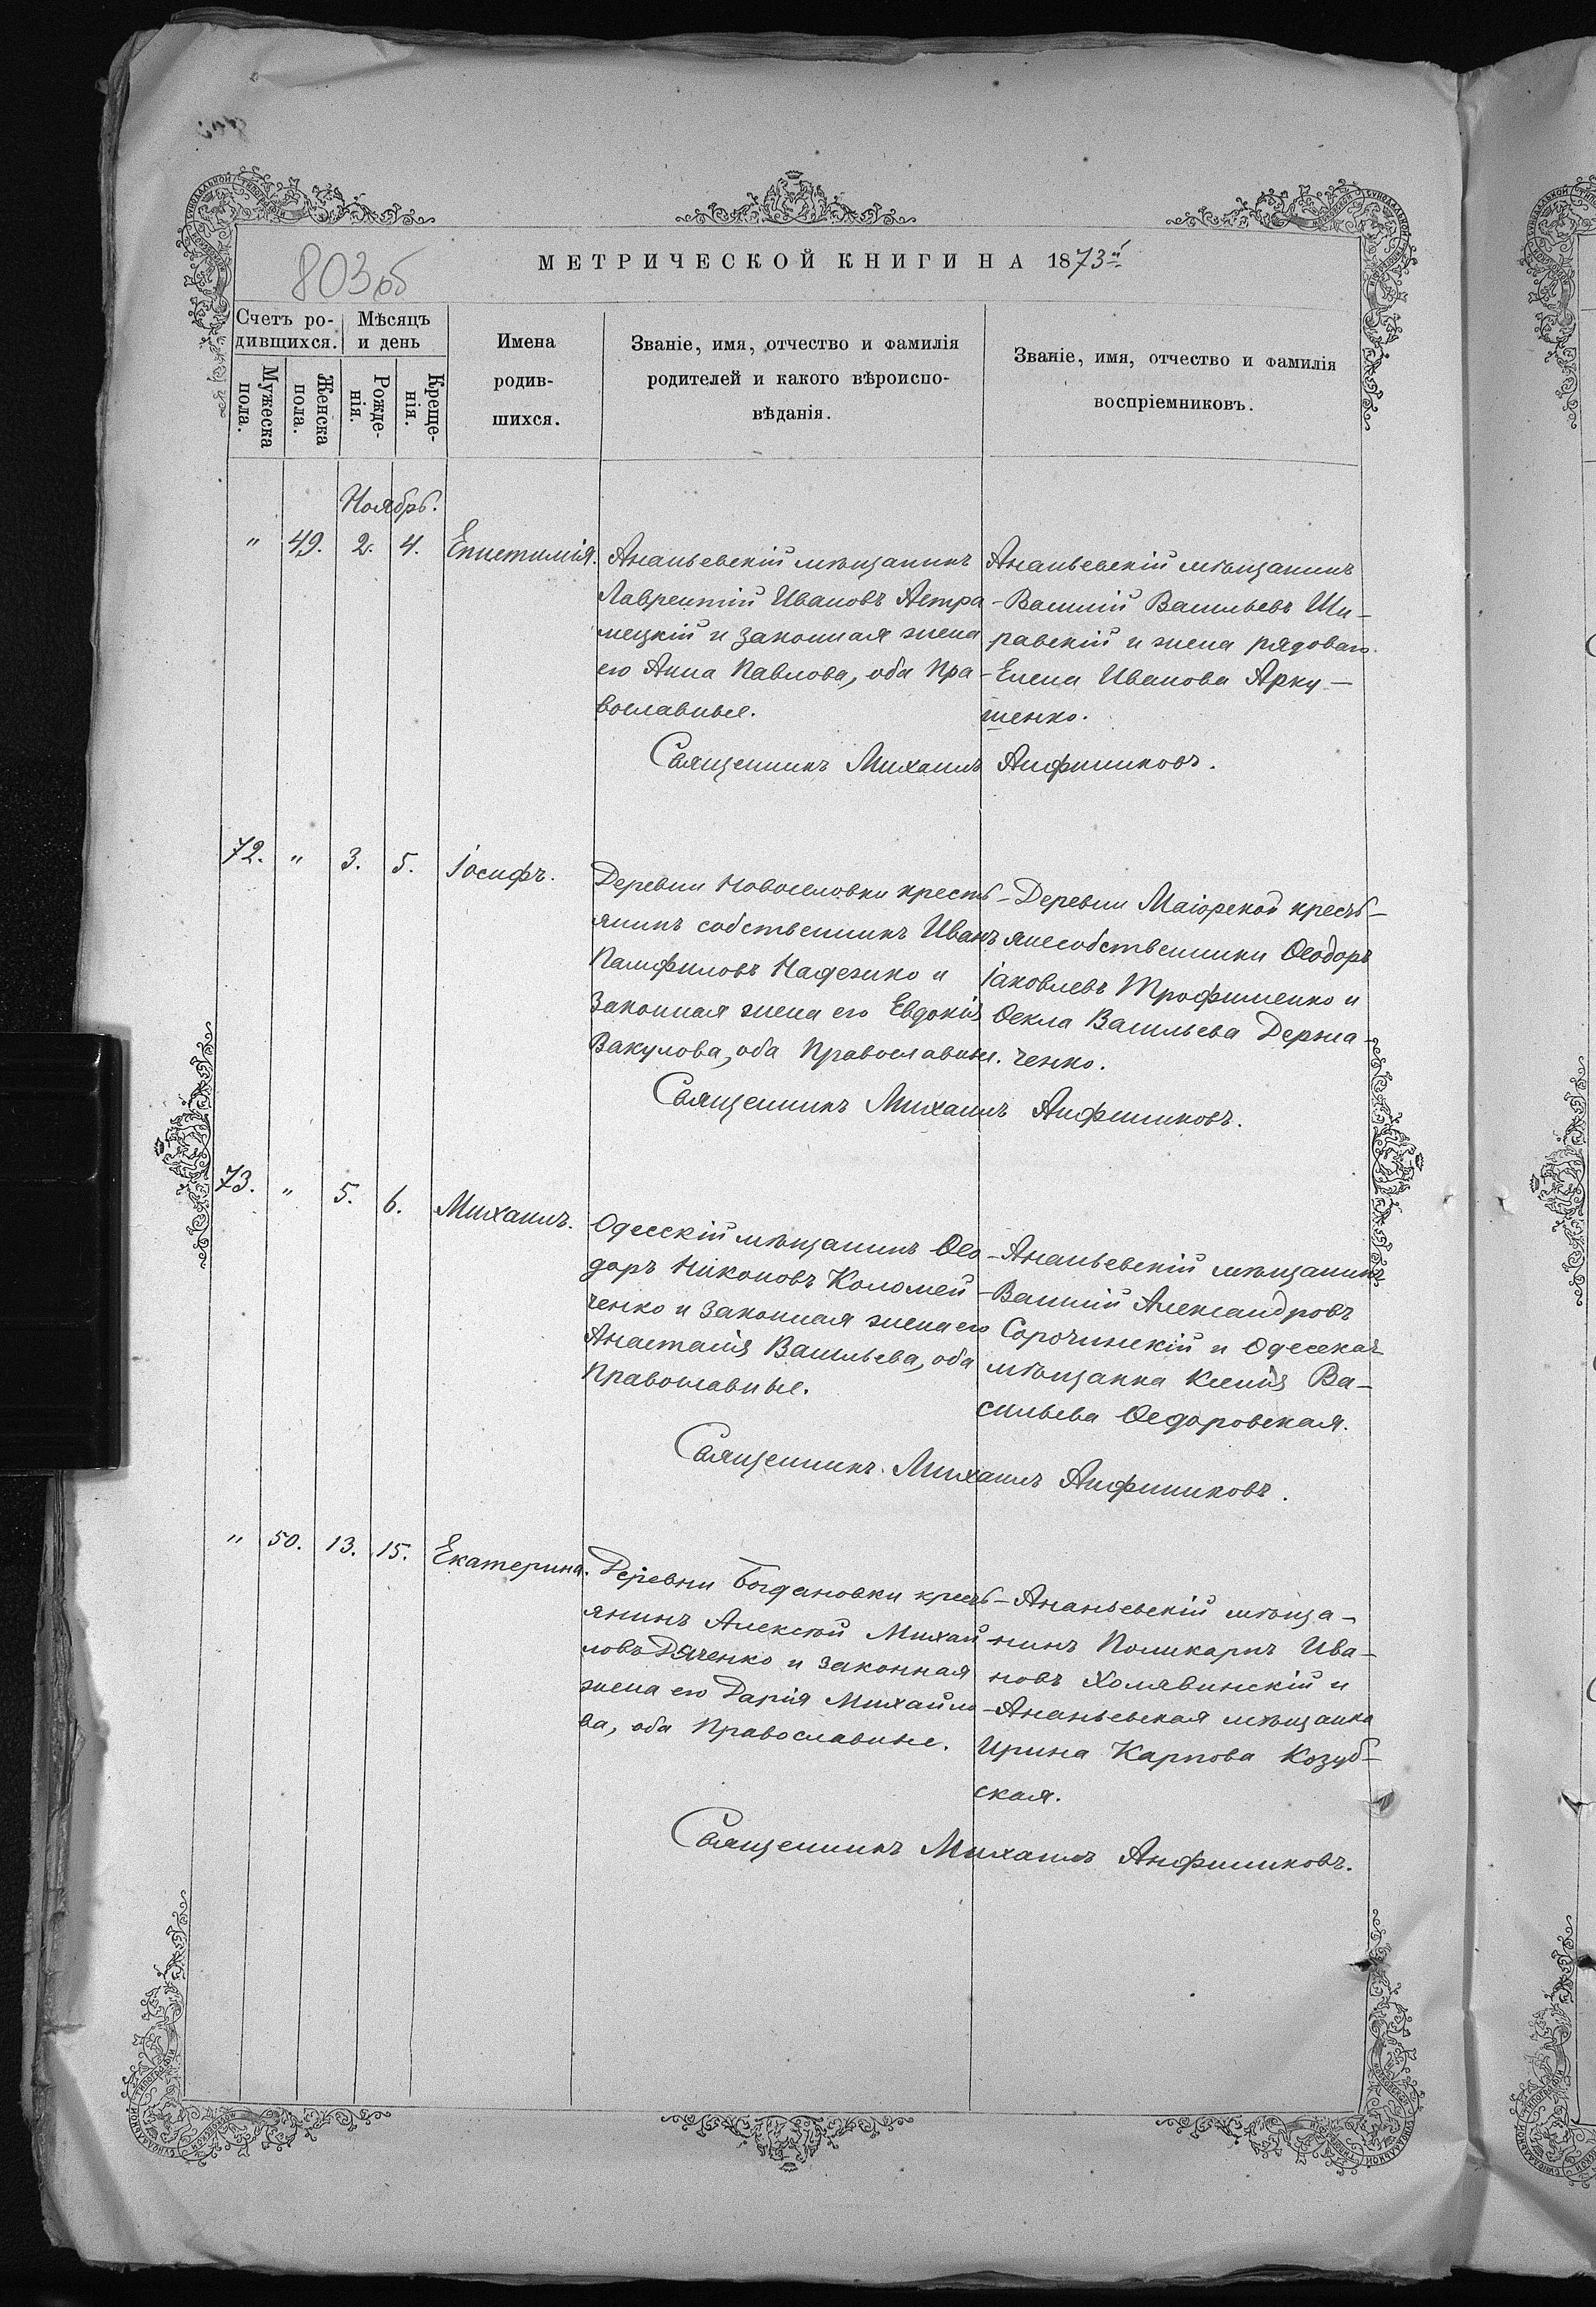 803об
МЕТРИЧЕСКОЙ КНИГИ НА 1873й
Счетъ ро-
дившихся.
Мѣсяцъ
и день
Мужеска
пола.
Женска
пола.
Рожде-
нія.
Креще-
нія.
Имена
родив-
шихся.
Званіе, имя, отчество и фамилія
родителей и какого вѣроиспо-
вѣданія.
Званіе, имя, отчество и фамилія
воспріемниковъ.
Ноябрь.
" 49. 2. 4. Епистимія.
Ананьевскій мѣщанинъ
Лаврентій Ивановъ Астра
мецкій и законная жена
его Анна Павлова, оба Пра-
вославные.
Ананьевскій мѣщанинъ
Василій Васильевъ Ши-
равскій и жена рядоваго
Елена Иванова Арку-
шенко.
Священникъ Михаилъ Анфиниковъ.
72. " 3. 5. Іосифъ.
Деревни Новоселовки кресть-
янинъ собственникъ Иванъ
Памфиловъ Надежко и
законная жена его Евдокія
Вакулова, оба Православные.
Деревни Маіорской кресть-
яне собственники Ѳеодоръ
Іаковлевъ Трофименко и
Ѳекла Васильева Держа-
ченко.
Священникъ Михаилъ Анфиниковъ.
73. " 5. 6. Михаилъ.
Одесскій мѣщанинъ Ѳео-
доръ Никоновъ Коломей-
ченко и законная жена его
Анастасія Васильева, оба
Православные.
Ананьевскій мѣщанинъ
Василій Александровъ
Сорочинскій и Одесская
мѣщанка Ксенія Ва-
сильева Ѳедоровская.
Священникъ Михаилъ Анфиниковъ.
" 50. 13. 15. Екатерина.
Деревни Богдановки кресть-
янинъ Алексѣй Михай
ловъ Дяченко и законная
жена его Дарія Михайло-
ва, оба Православные.
Ананьевскій мѣща-
нинъ Поликарпъ Ива-
новъ Холявинскій и
Ананьевская мѣщанка
Ирина Карпова Козуб-
ская.
Священникъ Михаилъ Анфиниковъ.